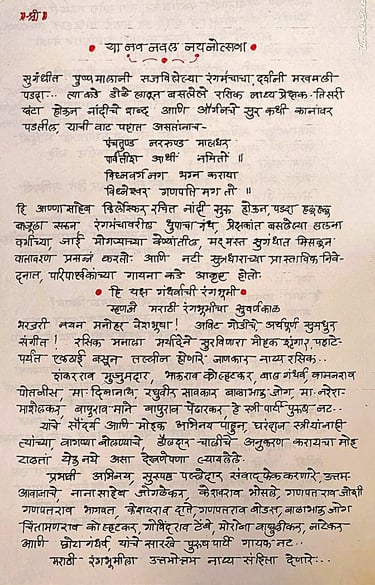 ॥श्री॥
या नव नवल नयनोत्सवा
सुगंधीत पुष्पमालांनी सजविलेल्या रंगमंचाचा, दर्शनी मखमली
पडदा... त्या कडे डोळे लावून बसलेले रसिक नाट्य प्रेक्षक. तिसरी
घंटा होऊन नांदीचे शब्द आणि ऑर्गनचे सुर कधी कानांवर
पडतील, याची वाट पहात असतांनाच—
पंचतुण्ड नररुण्ड मालधर
पार्वतीश आधी नमितो ॥
विघ्नवर्ग नग भग्न कराया
विघ्नेश्वर गणपति मग तो ॥
हि आण्णासाहेब किर्लोस्कर रचित नांदी सुरू होऊन, पडदा हळूहळू
बाजूला सरून रंगमंचावरील धुपाचा गंध, प्रेक्षकांत बसलेल्या ललना
वर्गाच्या, जाई मोगऱ्याच्या वेण्यांतील, मदमस्त सुगंधात मिसळून
वातावरण प्रसन्न करतो आणि नटी सुत्रधाराच्या प्रास्ताविक निवे-
दनात, पारिपार्श्वकांच्या गायना कडे आकृष्ट होतो.
हि यक्ष गंधर्वांची रंगभूमी
म्हणजे मराठी रंगभूमीचा सुवर्णकाळ
भरजरी नयन मनोहर वेशभूषा! अविट गोडीचे, अर्थपूर्ण सुमधुर
संगीत! रसिक मनाला मर्यादेने सुरविणारा मोहक शृंगार, पहाटे-
पर्यंत एकठाई बसून तल्लीन होणारे जाणकार नाट्य रसिक..
शंकरराव मुजुमदार, भाऊराव कोल्हटकर, बाल गंधर्व वामनराव
पोतनीस, मा. दिनानाथ, रघुवीर सावकार बाळाभाऊ जोग, मा. नरेश-
माशेलकर बापुराव माने बापुराव पेंढारकर, हे स्त्री पार्टी पुरुष नट..
यांचे सौंदर्य आणि मोहक अभिनय पाहून, घरंदाज स्त्रीयांनाही
त्यांच्या, वागण्या बोलण्याचे, डौलदार चालीचे अनुकरण करायचा मोह
टाळतां येऊ नये असा देखणेपणा ल्यायलेले.
प्रभावी अभिनय, सुस्पष्ट पल्लेदार संवादफेक करणारे, उत्तम
आवाजाचे, नानासाहेब जोगळेकर, केशवराव भोसले, गणपतराव जोशी
गणपतराव भागवत, केशवराव दाते, गणपतराव बोडस, बाळाभाऊ जोग
चिंतामणराव कोल्हटकर, गोविंदराव टेंबे, मोरोबा वाघुळीकर, नाटेकर
आणि छोटा गंधर्व, यांचे सारखे पुरुष पार्टी गायक नट..
मराठी रंगभूमीला उत्तमोत्तम नाट्य संहिता देणारे...